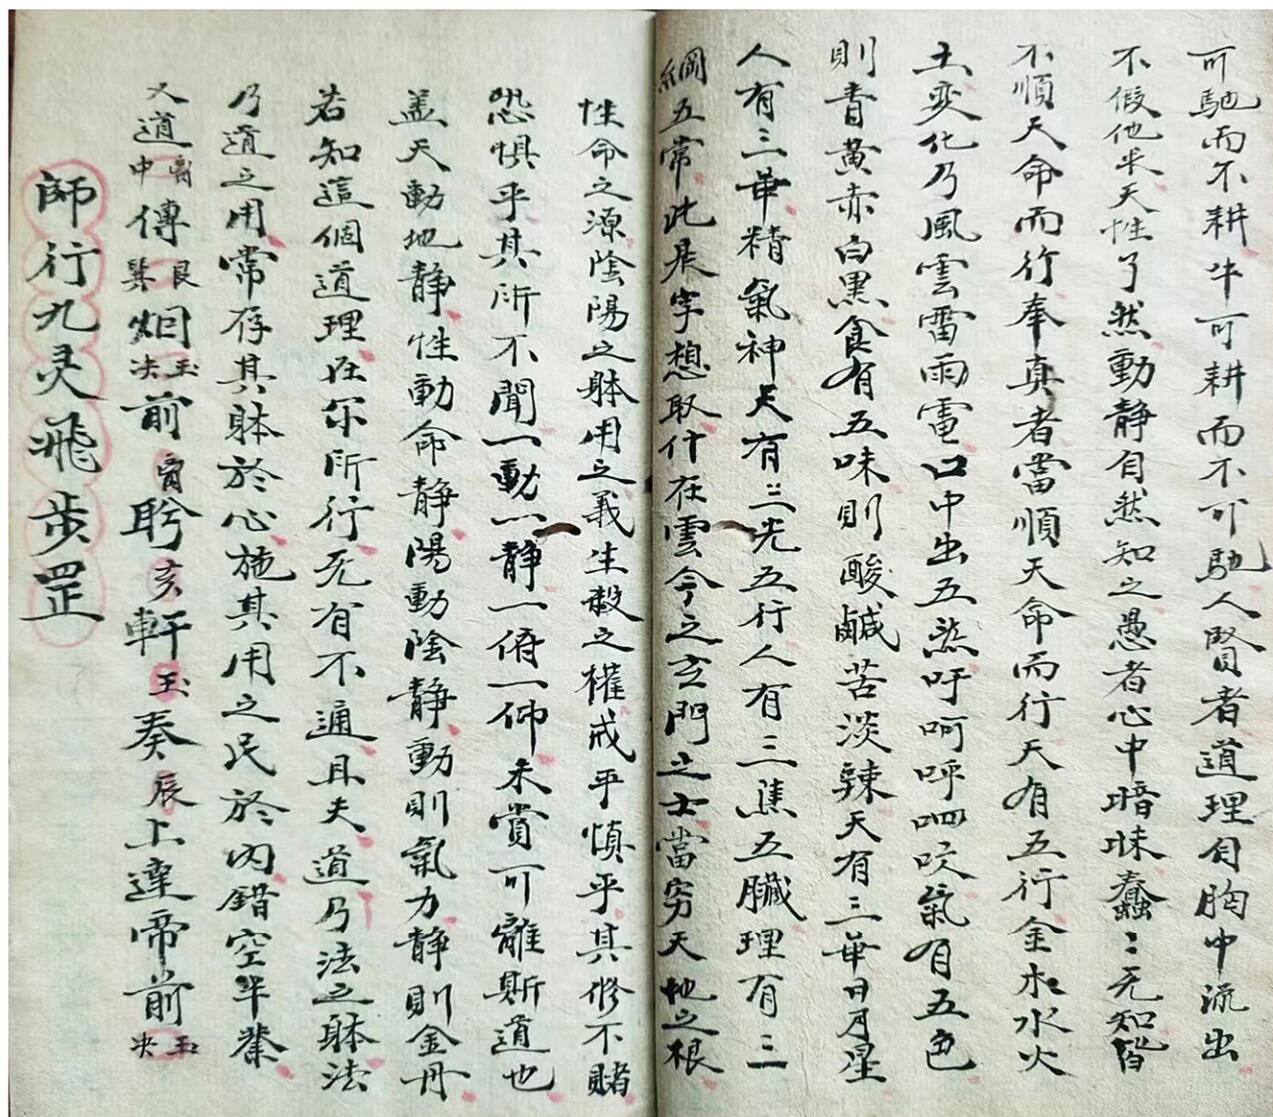 可馳而不耕牛可耕而不可馳人賢者道理自胸中流出
不假他求天性了然動静自然知之愚者心中暗昧蠢〻无知皆
不順天命而行奉真者當順天命而行天有五行金木水火
土变化乃風雲雷雨電口中出五炁吁呵呼呬吹氣有五色
則青黄赤白黒食有五味則酸鹹苦淡辣天有三華日月星
人有三華精氣神天有三光五行人有三焦五臟理有三
綱五常此是字想取什在雲今之玄門之士當穷天地之根
性命之源陰陽之躰用之義生殺之權戒乎慎乎其修不賭
恐惧乎其所不聞一動一静一俯一仰未賞可離斯道也
盖天動地静性動命静陽動陰静動則氣力静則金丹
若知這個道理在尔所行无有不通且夫道乃法之躰法
乃道之用常存其躰於心施其用之民於内錯空半
又道中傳烟决玉前聆亥軒玉奏辰上達帝前决玉
師行九灵飛步罡